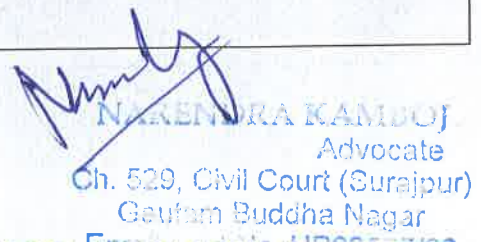 NARENDRA KAMBOJ
Advocate
Ch. 529, Civil Court (Surajpur)
Gautam Buddha Nagar